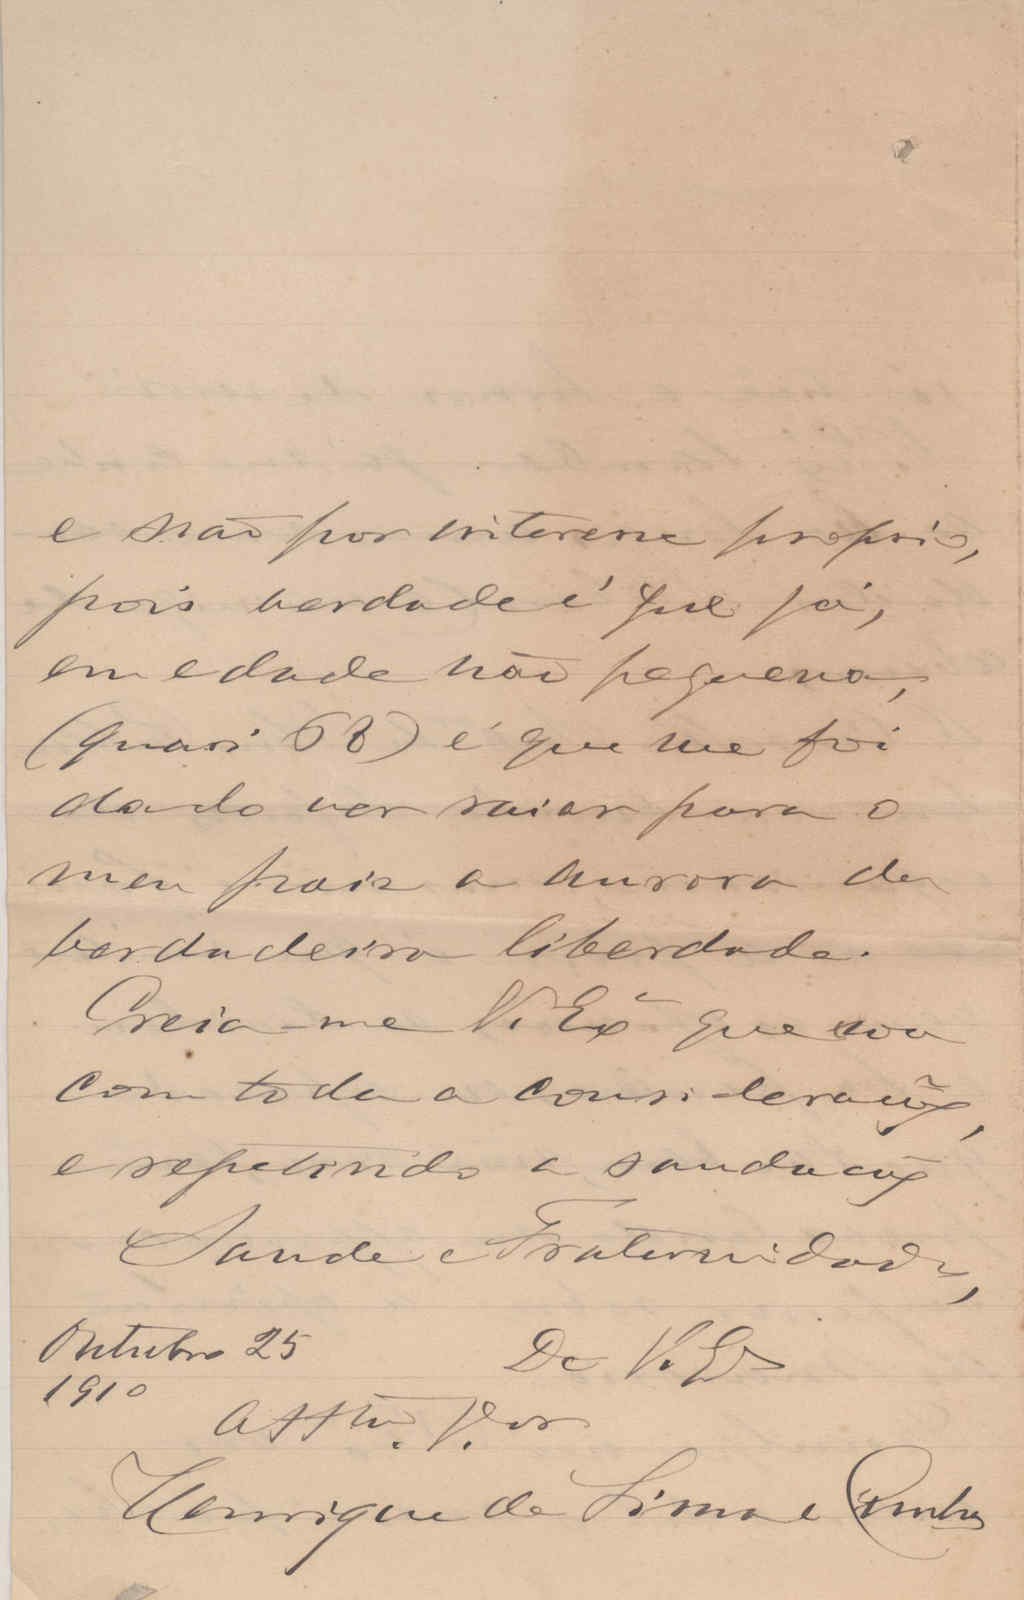 e não por interesse proprio,
pois verdade é que já,
em edade não pequena,
(quasi 68) é que me foi
dado ver raiar para o
meu paiz a aurora da
verdadeira liberdade.
Creia-me V. Exª que sou
com toda a consideração,
e repetindo a saudação
Saude e Fraternidade,
Outubro 25
1910
De V. Exª
Attº. V.or
Henrique de Lima e Cunha